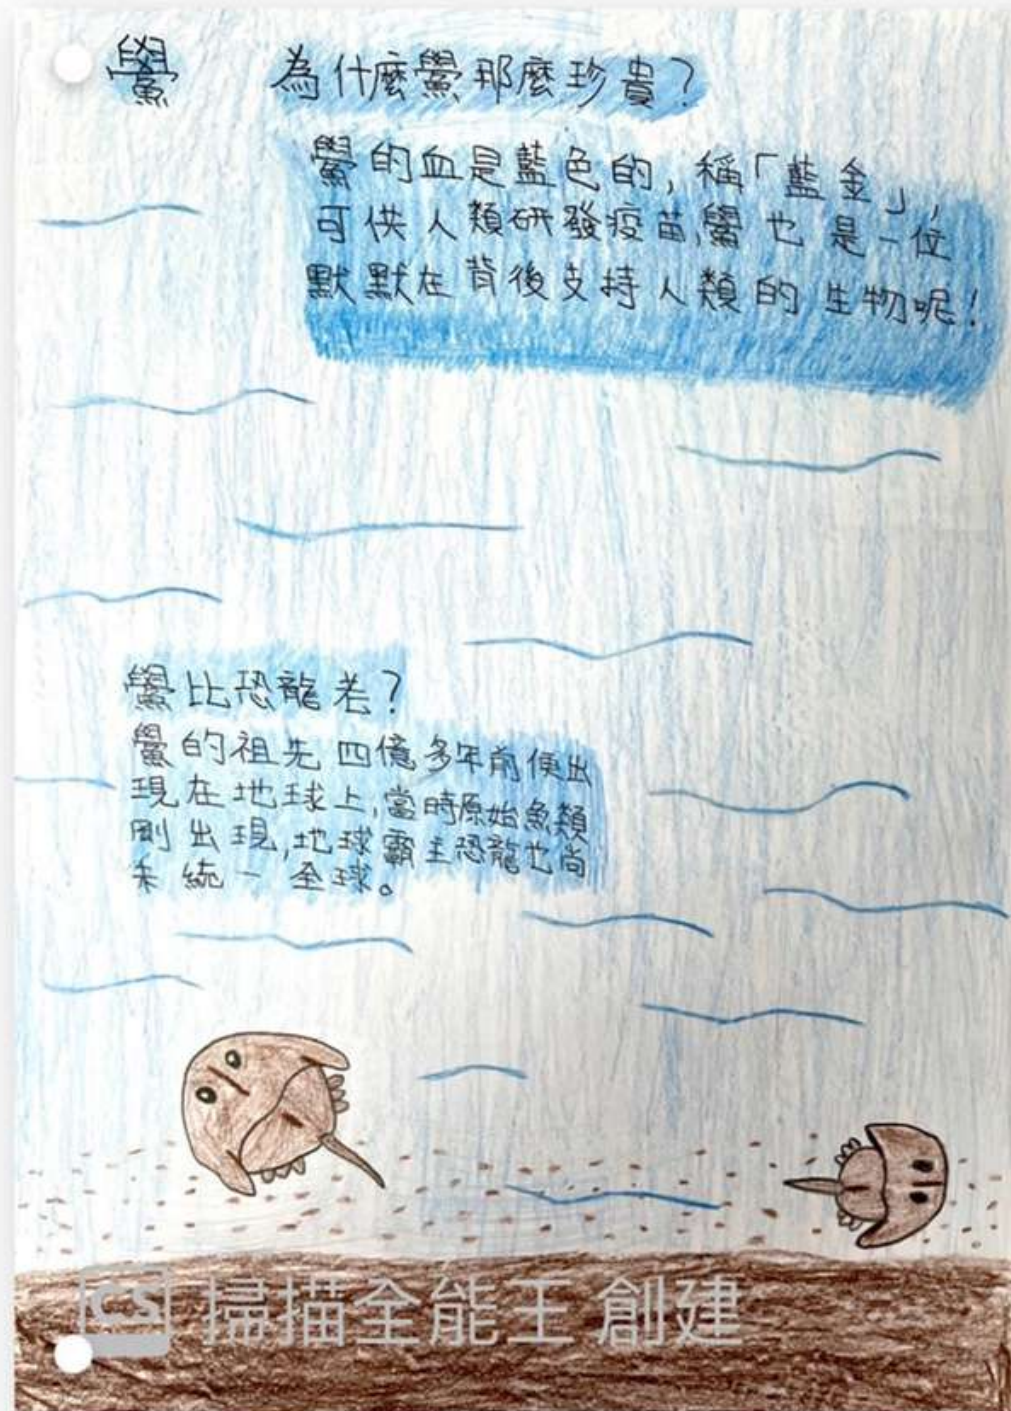 鱟
為什麼鱟那麼珍貴?
鱟的血是藍色的,稱「藍金」,
可供人類研發疫苗,鱟也是一位
默默在背後支持人類的生物呢!
鱟比恐龍老?
鱟的祖先四億多年前便出
現在地球上,當時原始魚類
剛出現,地球霸主恐龍也尚
未統一全球。
CS 掃描全能王 創建